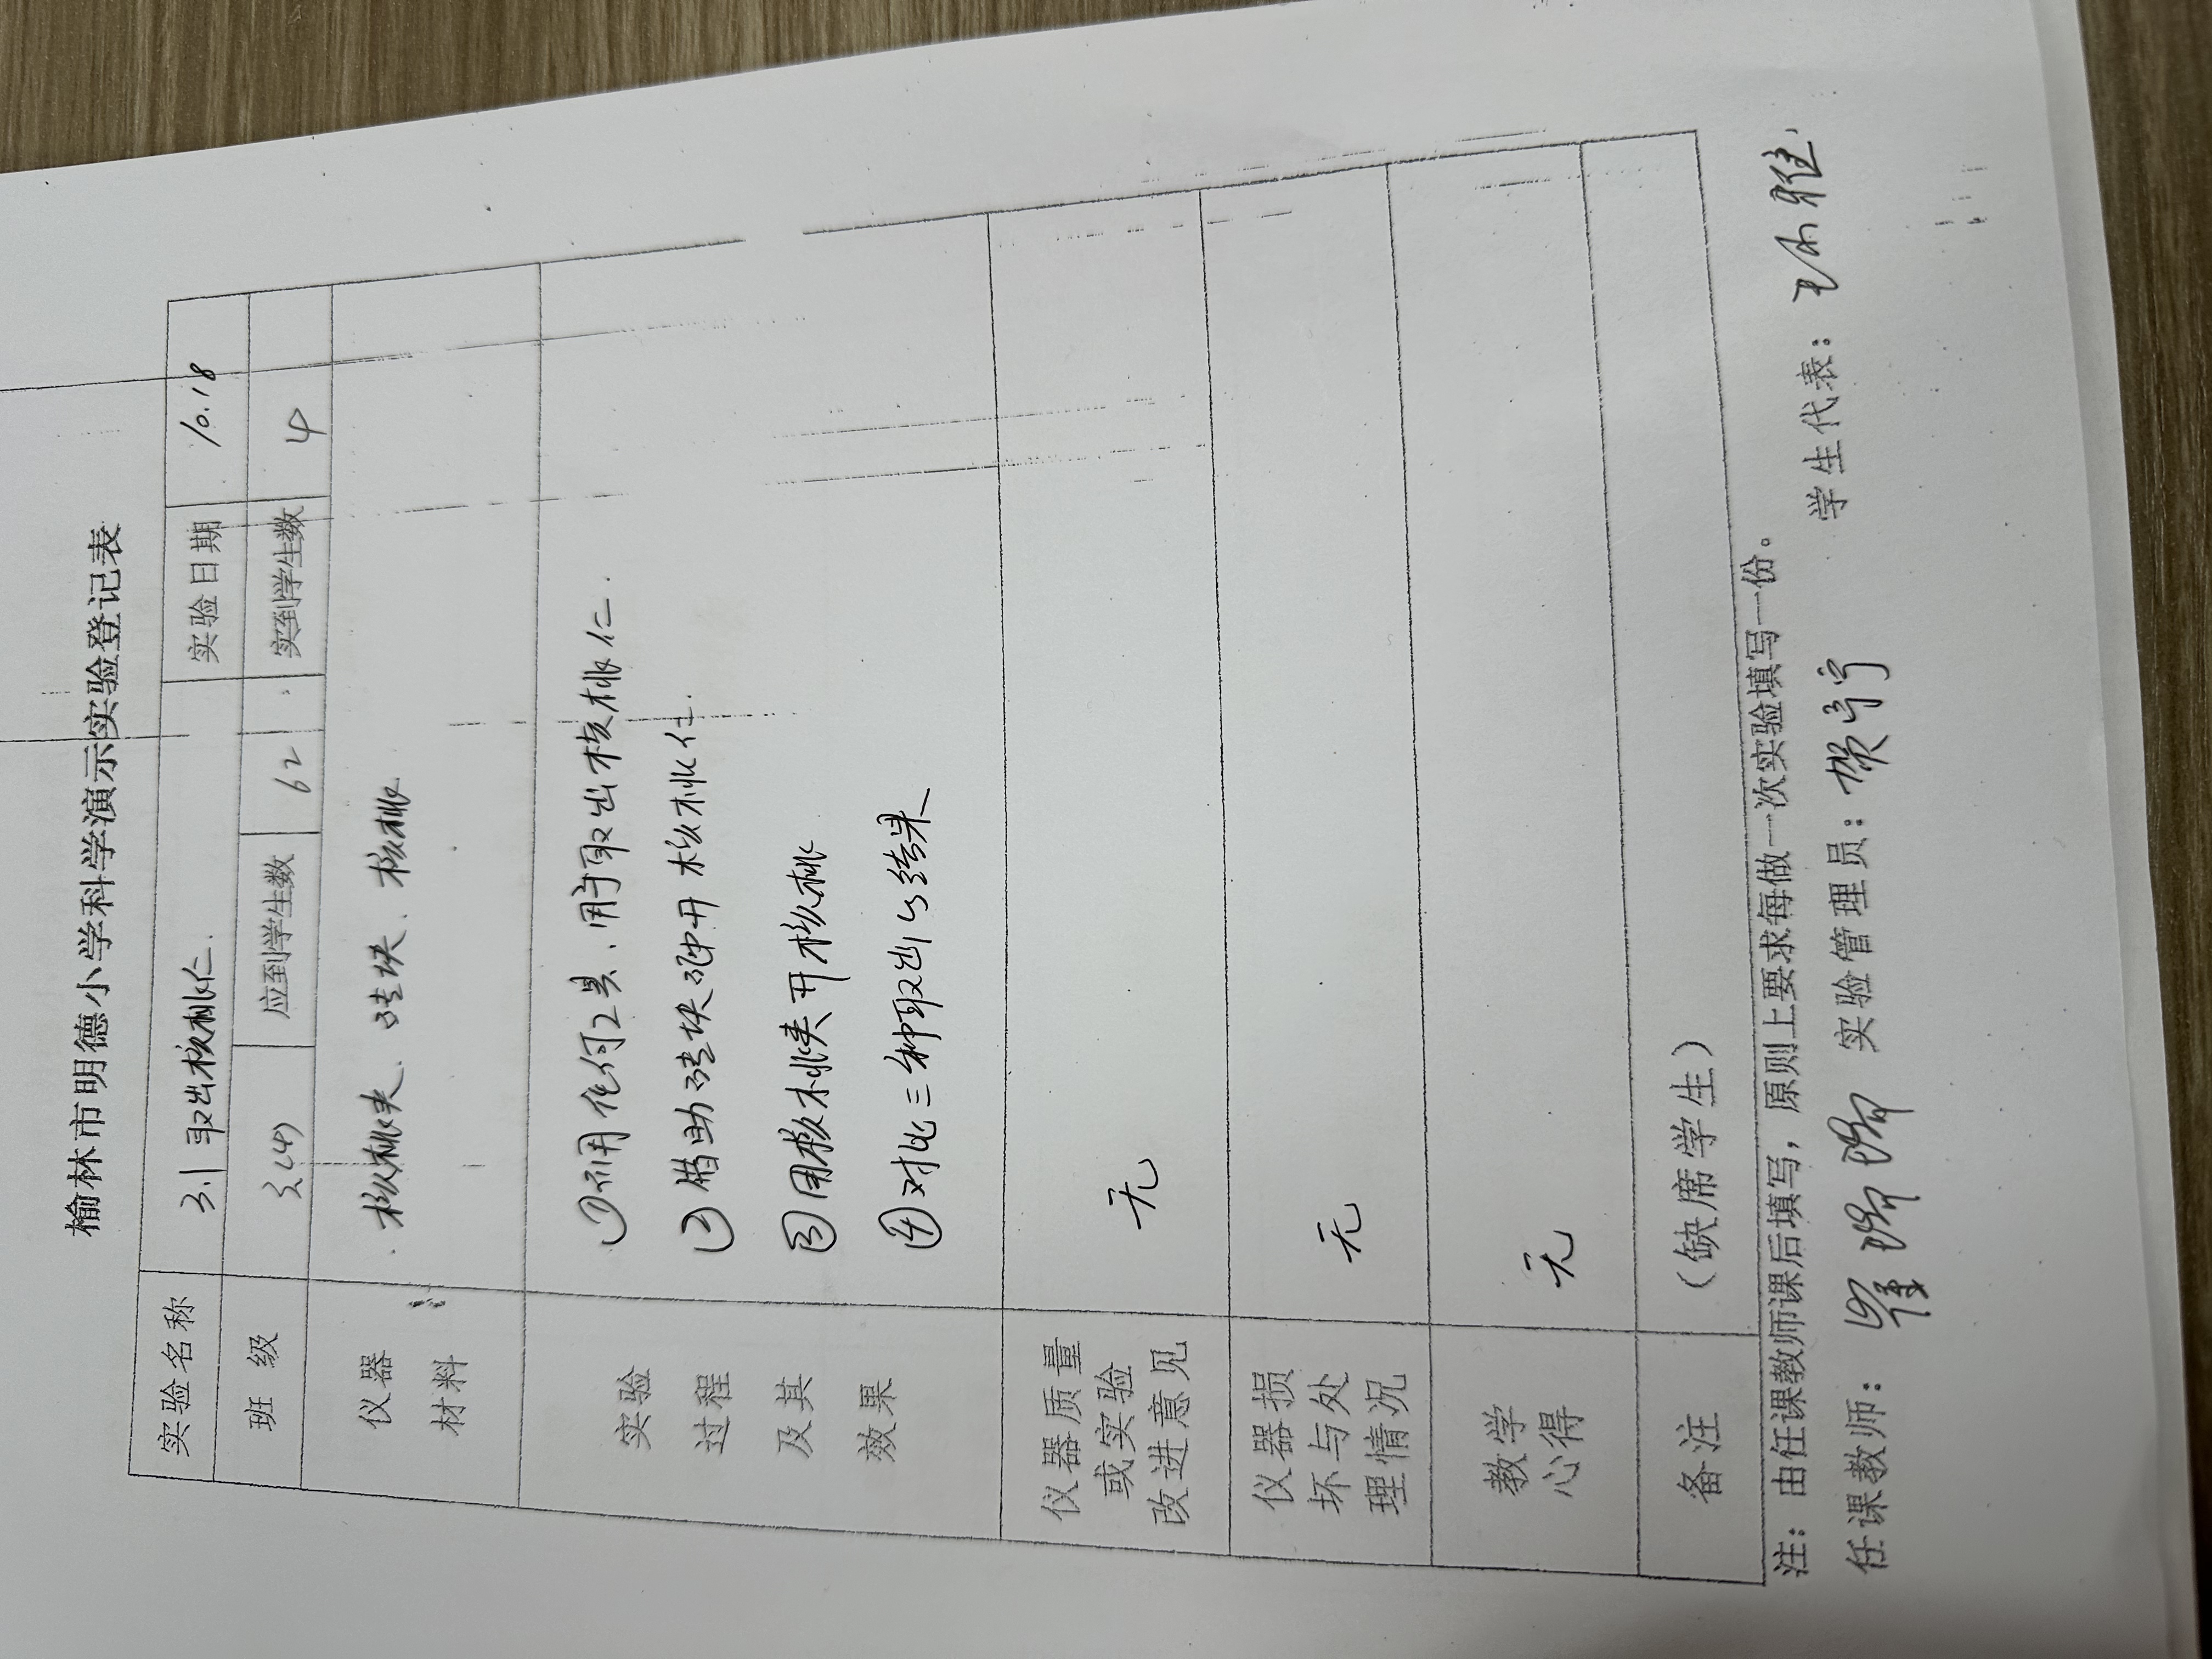 榆林市明德小学科学演示实验登记表
实验名称 3.1 取出核桃仁. 实验日期 10.18
班 级 3.(4) 应到学生数 62 实到学生数
仪器 核桃夹、砖块、核桃
材料
实验 ①不用任何工具、用手取出核桃仁.
过程 ②借助砖块砸开核桃仁.
及其 ③用核桃夹开核桃
效果 ④对比三种取出的结果
仪器质量
或实验 无
改进意见
仪器损
坏与处 无
理情况
教学 无
心得
备注 （缺席学生）
注：由任课教师课后填写，原则上要求每做一次实验填写一份。
任课教师： 实验管理员：贺宁 学生代表：